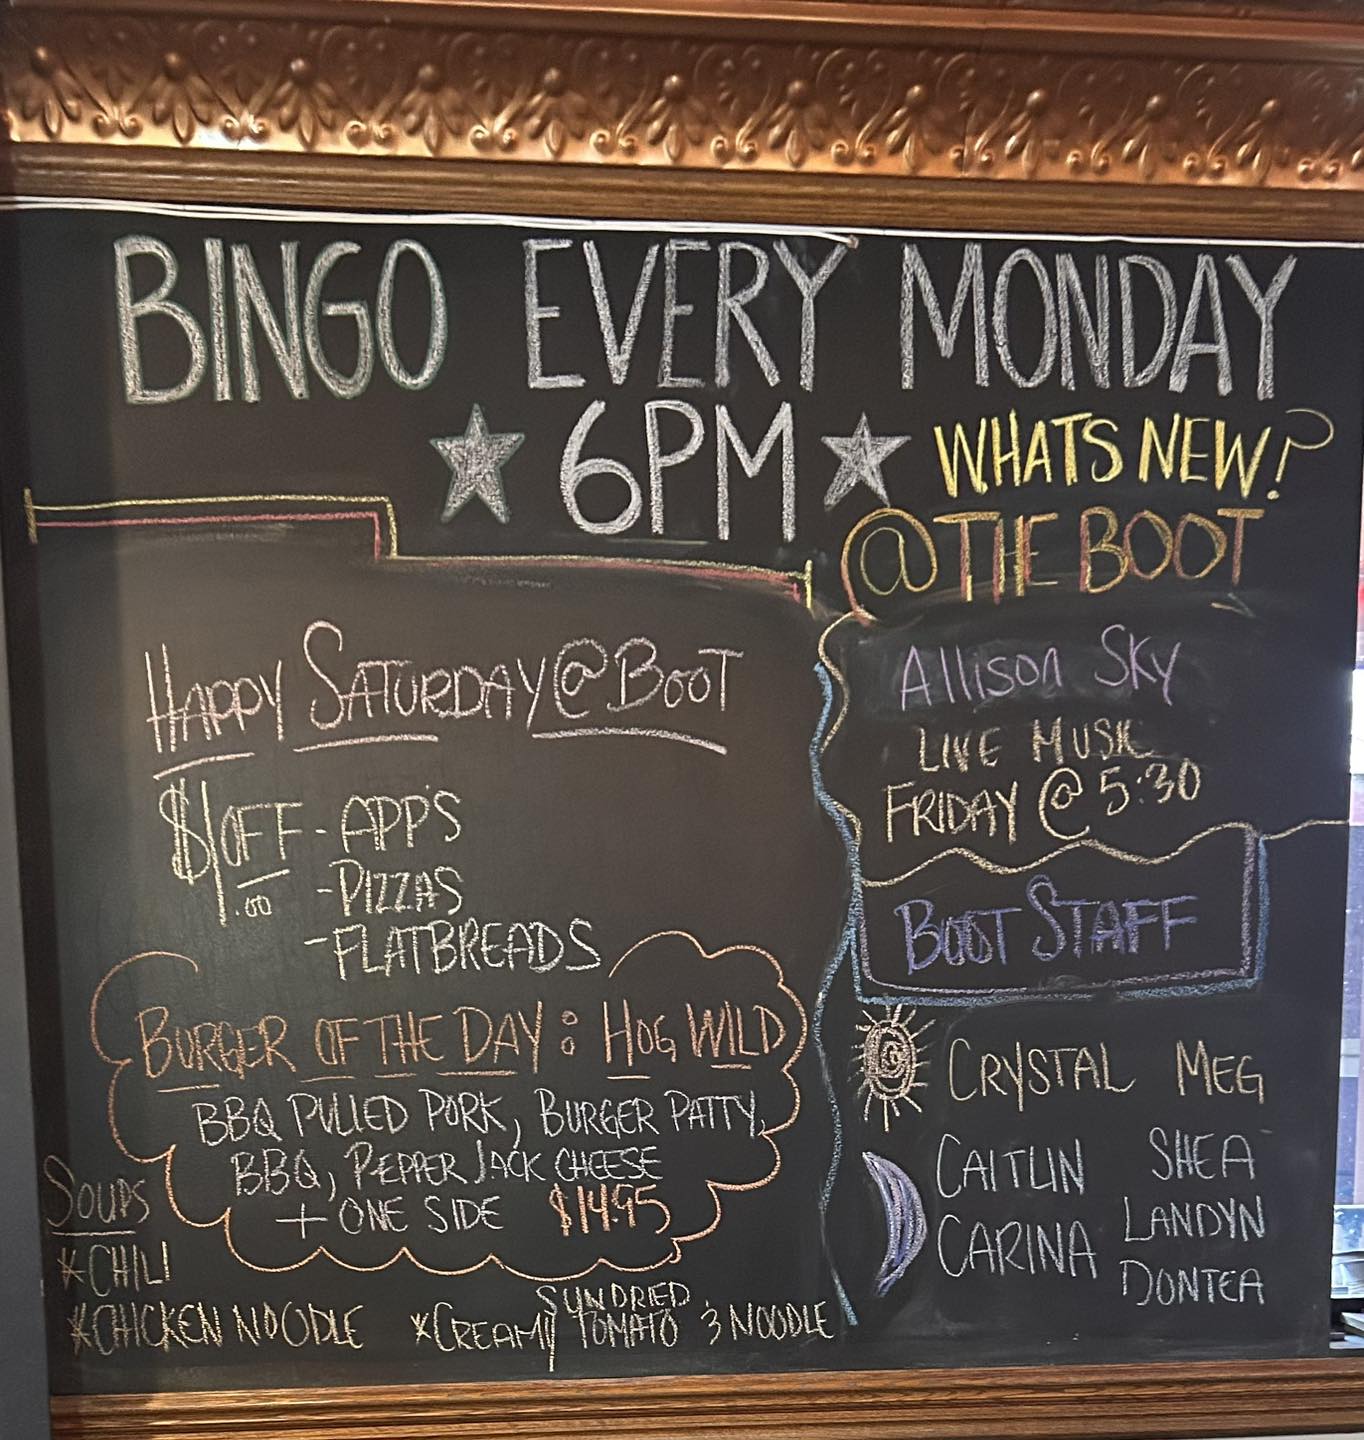 BINGO EVERY MONDAY
6PM
WHATS NEW?
@ THE BOOT
HAPPY SATURDAY @ BOOT
$1.00 OFF - APP'S
- PIZZAS
- FLATBREADS
BURGER OF THE DAY: HOG WILD
BBQ PULLED PORK, BURGER PATTY,
BBQ, PEPPER JACK CHEESE
+ ONE SIDE $14.95
SOUPS
*CHILI
*CHICKEN NOODLE
*CREAMY SUNDRIED TOMATO 3 NOODLE
Allison Sky
LIVE MUSIC
FRIDAY @ 5:30
BOOT STAFF
CRYSTAL MEG
CAITLIN SHEA
CARINA LANDYN
DONTEA